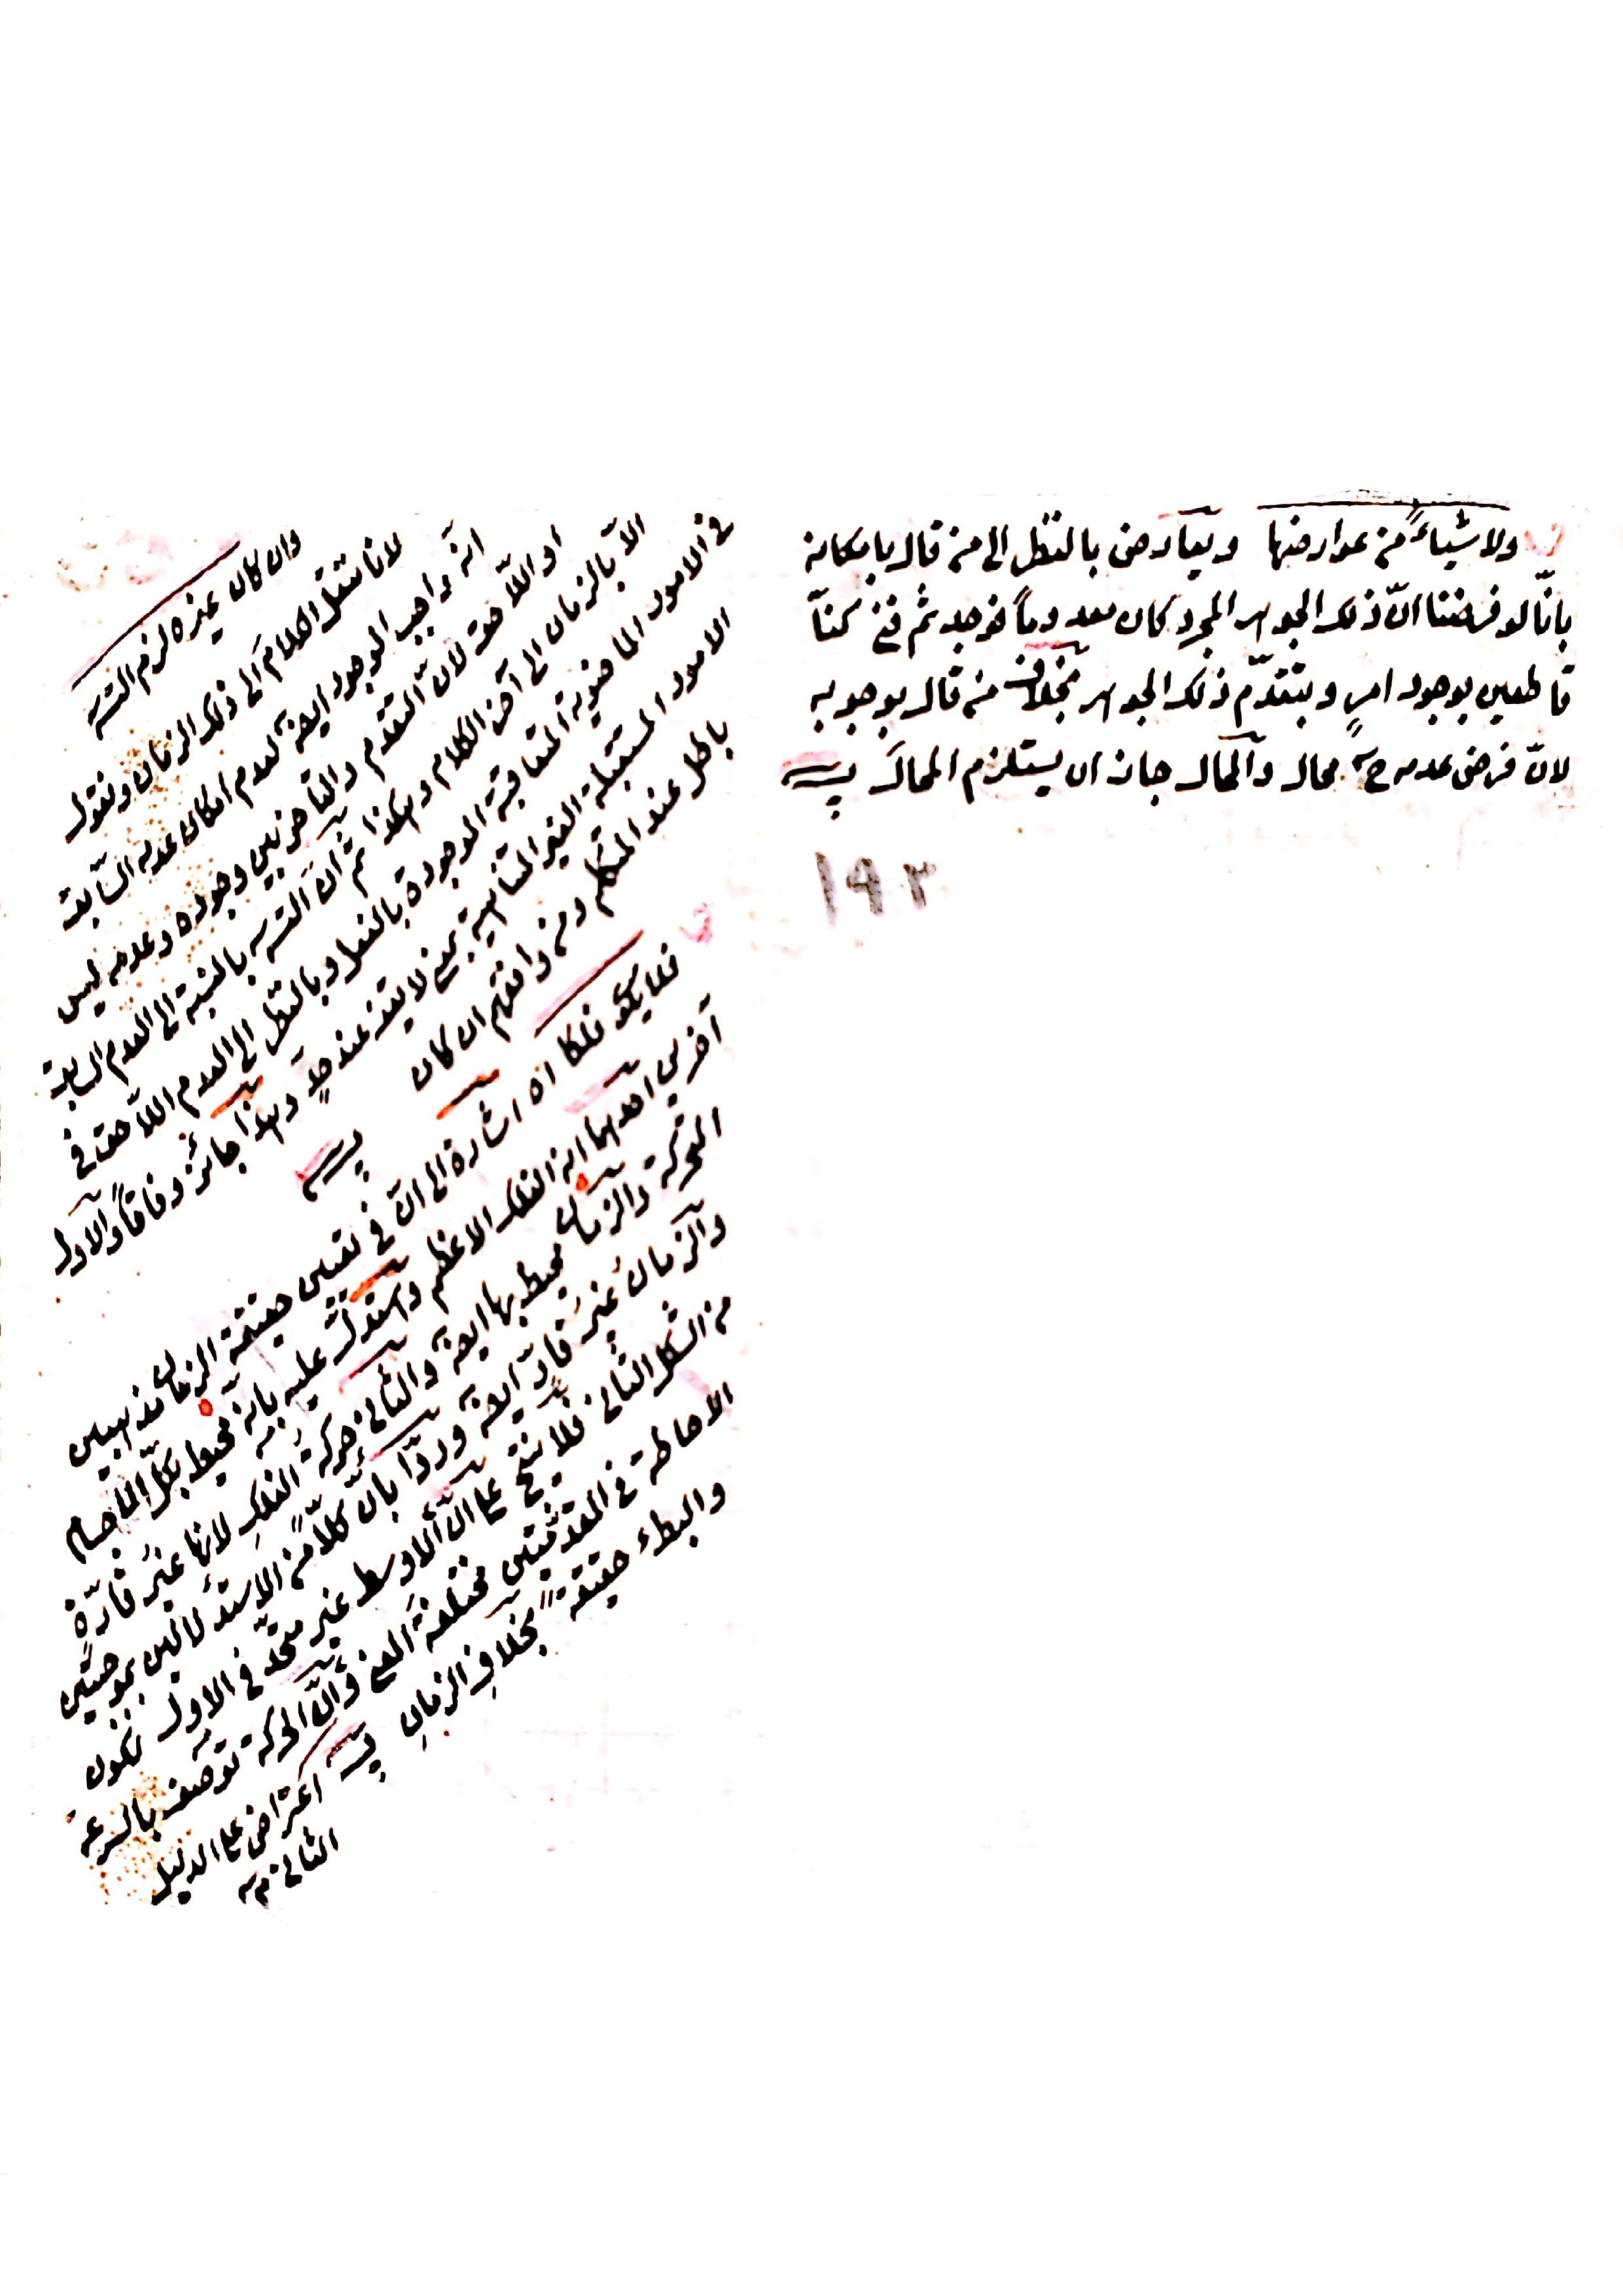 ولا شياءً من عوارضها ويعارض بالنظر الى من قال بامكانه
بانّا لو فرضنا انّ ذلك الجوهر المجرد كان معدوماً فوجد ثم فنى كنّا
قاطعين بوجود امرٍ وبتقدّم ذلك الجوهر بخلاف من قال بوجوبه
لانّ فرض عدمه ح محال والمحال جاز ان يستلزم المحال
١٩٣
وان كان غيره لزم التسه
لانا ننقل الكلام الى ذلك الزمان ونقول
انّه واجب الوجود ايضا لعدم امكان عدمه السّابق
او اللّاحق لانّ التقدم والتاخر بين وجوده وعدمه ليس
الّا بالزمان الى آخر الكلام وهكذا ثم انّ التسه بالنسبة الى العدم السابق
فى الامور الماضوية المتعاقبة الموجودة بالفعل وبالنظر الى العدم اللّاحق فى
الامور المستقبلة الغير المتناهية بمعنى لا يقف عند حدٍ وهذا جائز وفاقاً والاول
باطل عند المتكلم ومن وافقهم ان كان
فلا يكو فلكا اه اشارة الى انّ فى تعيين حقيقة الزمان مذهبين
آخرين احدهما انه الفلك الاعظم واستدلّ عليه بانّه محيط بكلّ الاجسام
المتحركة والزمان محيط بها ايضا والثانى حركة الفلكِ لانها غيرُ قارّة
والزمانُ غيرُ قارٍّ ايضا وردّا بانّ كلّاً من الاستدلالين بموجبتين
من الشكل الثانى فلا ينتج على انّ الاوسط غير متحد فى الاول لكون
الاحاطة فى المقدمتين مختلفة المعنى وانّ الحركة توصف بالسرعة
والبطء حقيقةً بخلافِ الزمانِ
اعتراض على الدليل
الثانى منه